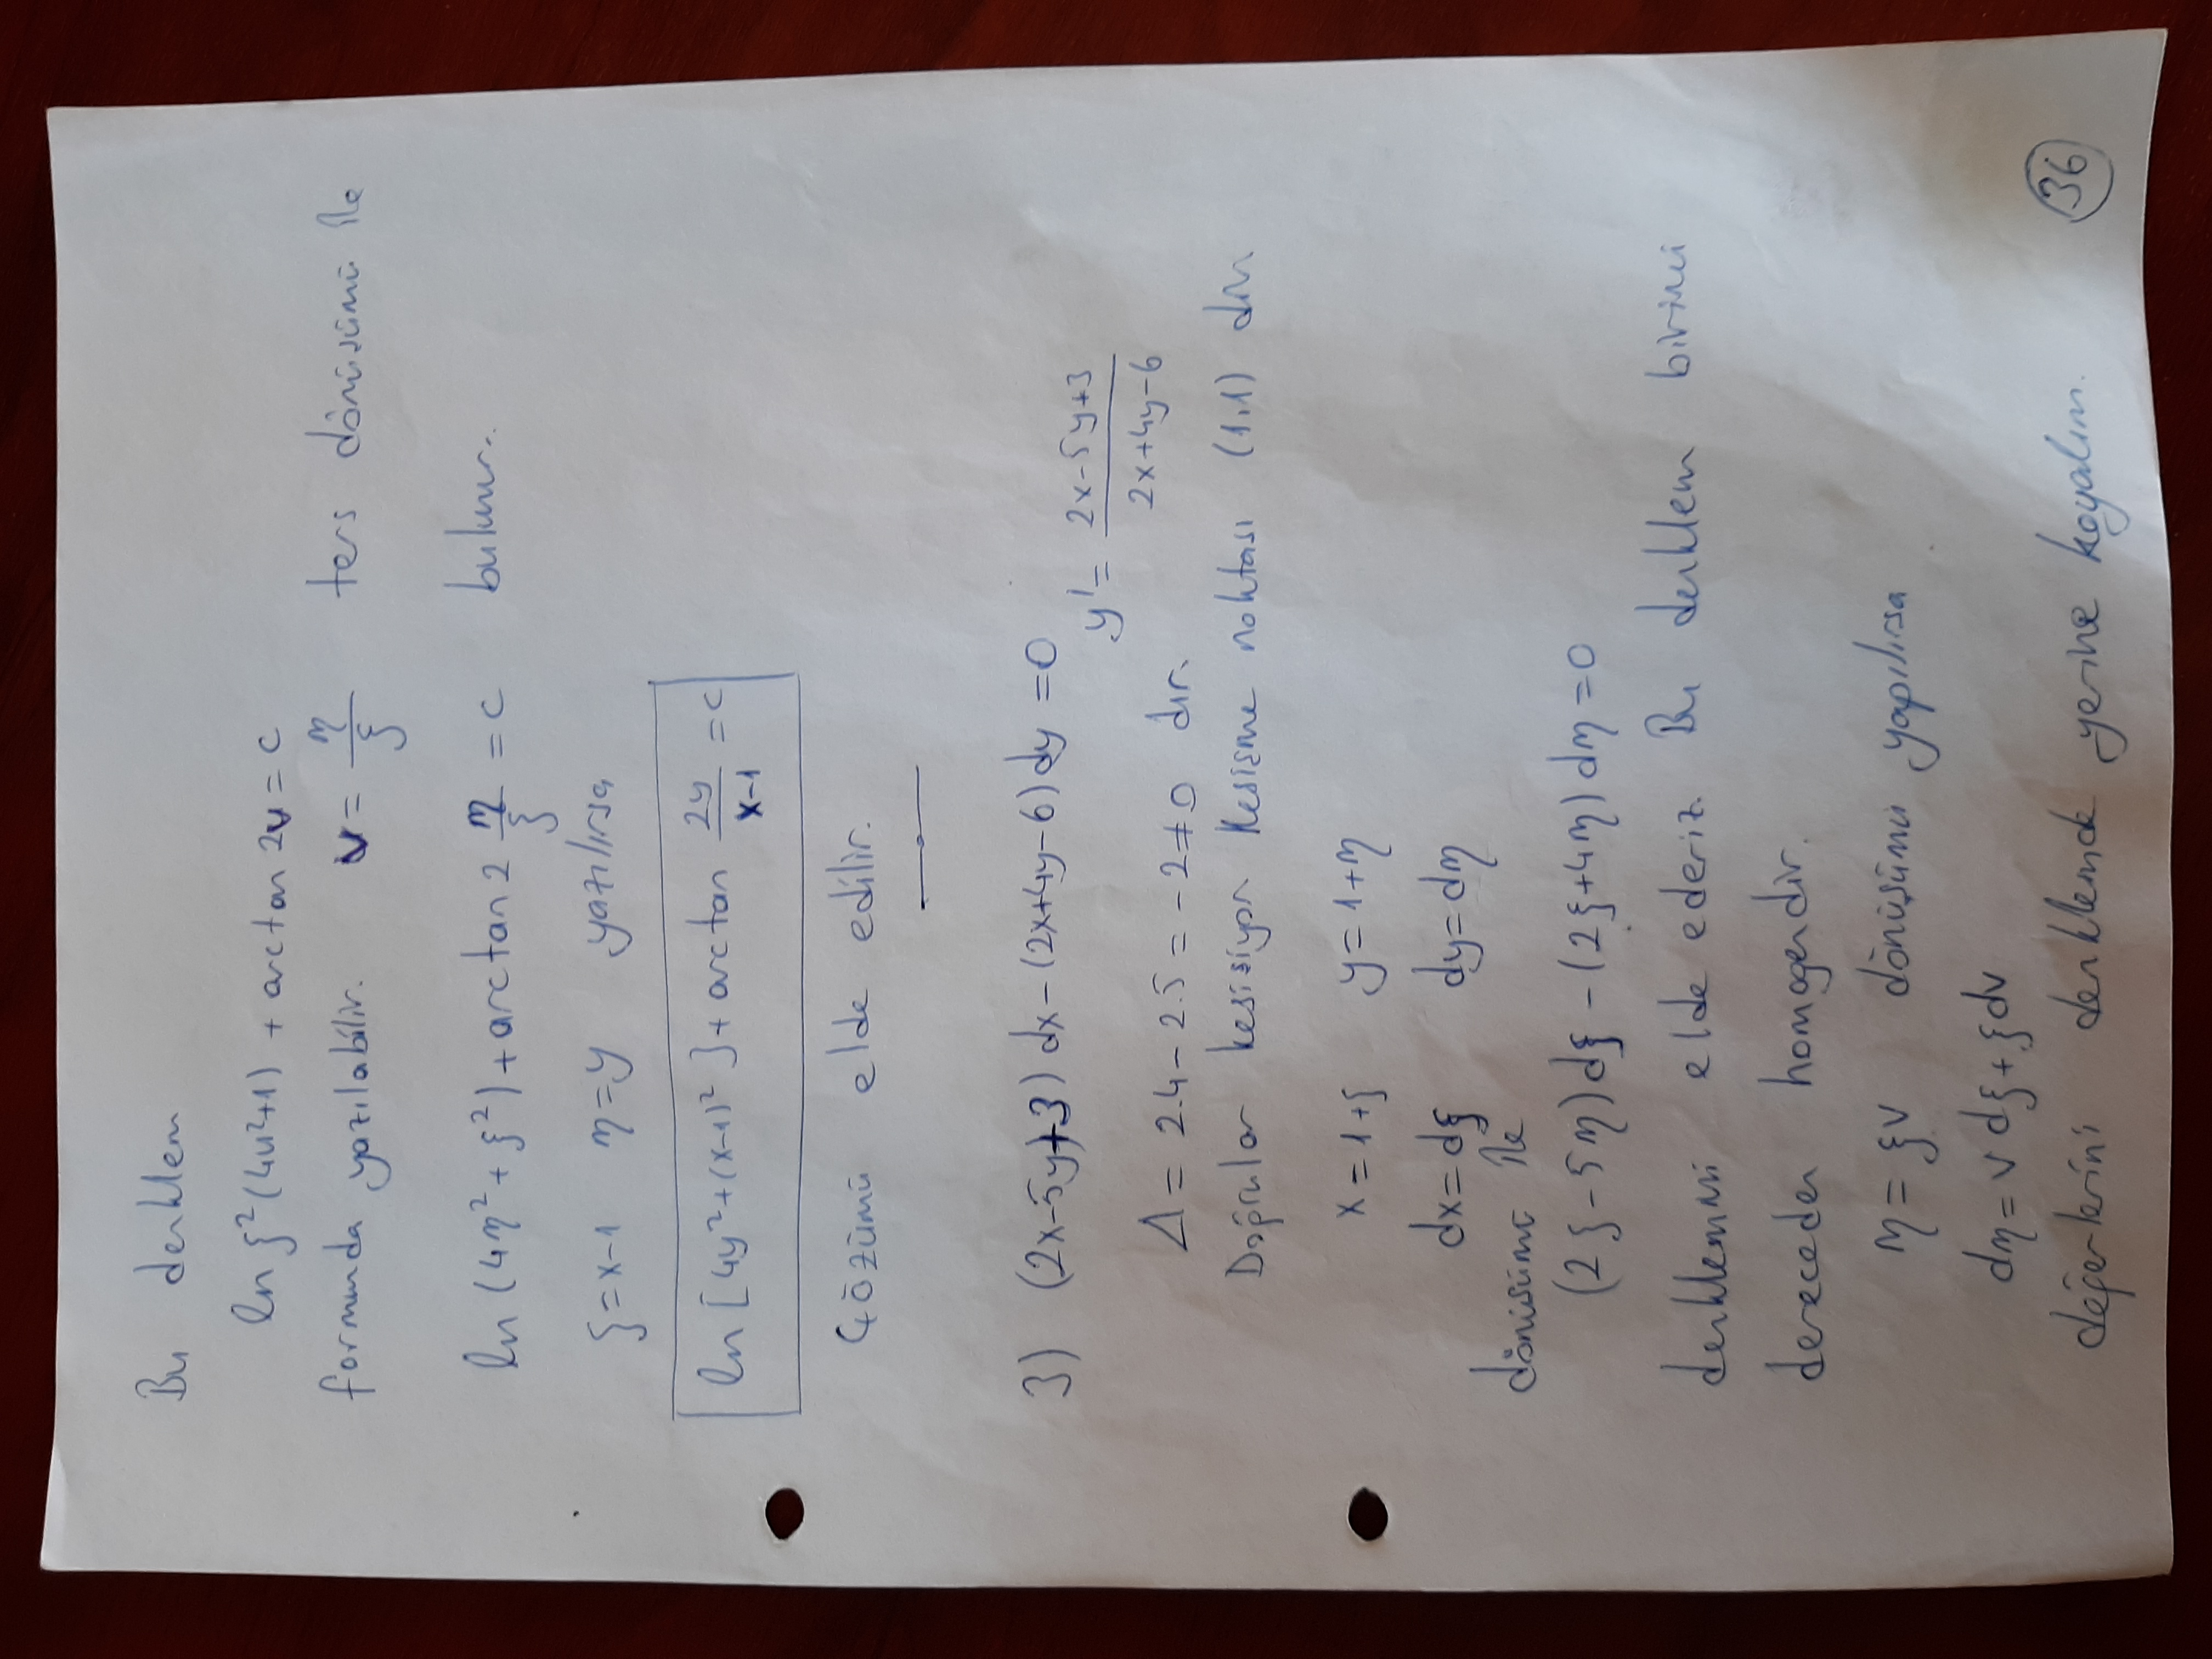 Bu denklem
ln ξ²(4u²+1) + arctan 2v = c
formunda yazılabilir. v = η/ξ ters dönüşümü ile
ln (4η² + ξ²) + arctan 2 η/ξ = c bulunur.
ξ = x-1 η = y yazılırsa
ln [4y² + (x-1)²] + arctan 2y/(x-1) = c
Çözümü elde edilir.
3) (2x-5y+3) dx - (2x+4y-6) dy = 0
y' = (2x-5y+3)/(2x+4y-6)
Δ = 2.4 - 2.5 = -2 ≠ 0 dır.
Doğrular kesişiyor Kesişme noktası (1,1) dir
x = 1+ξ y = 1+η
dx = dξ dy = dη
dönüşümü ile
(2ξ - 5η) dξ - (2ξ + 4η) dη = 0
denklemini elde ederiz. Bu denklem birinci
dereceden homogendir.
η = ξv dönüşümü yapılırsa
dη = v dξ + ξ dv
değerlerini denklemde yerine koyalım.
36